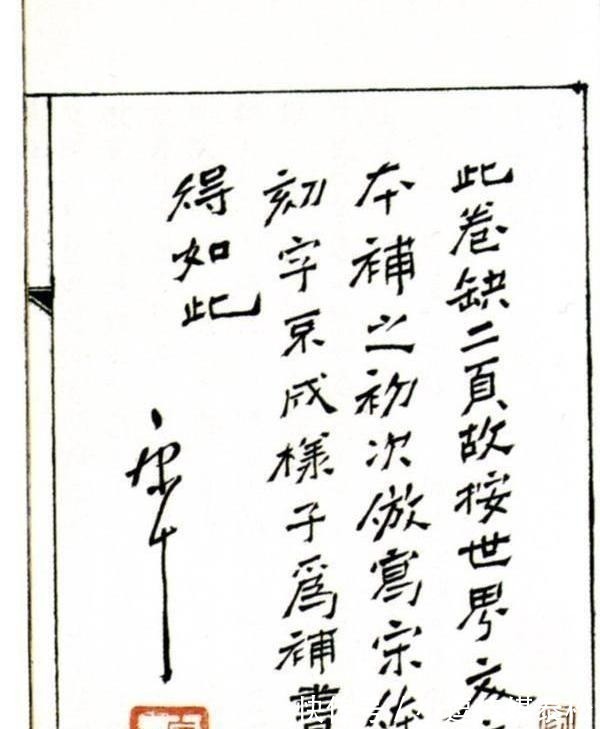 此卷缺二頁故按世界文
本補之初次倣寫宋
刻字成樣子爲補書
得如此
康生